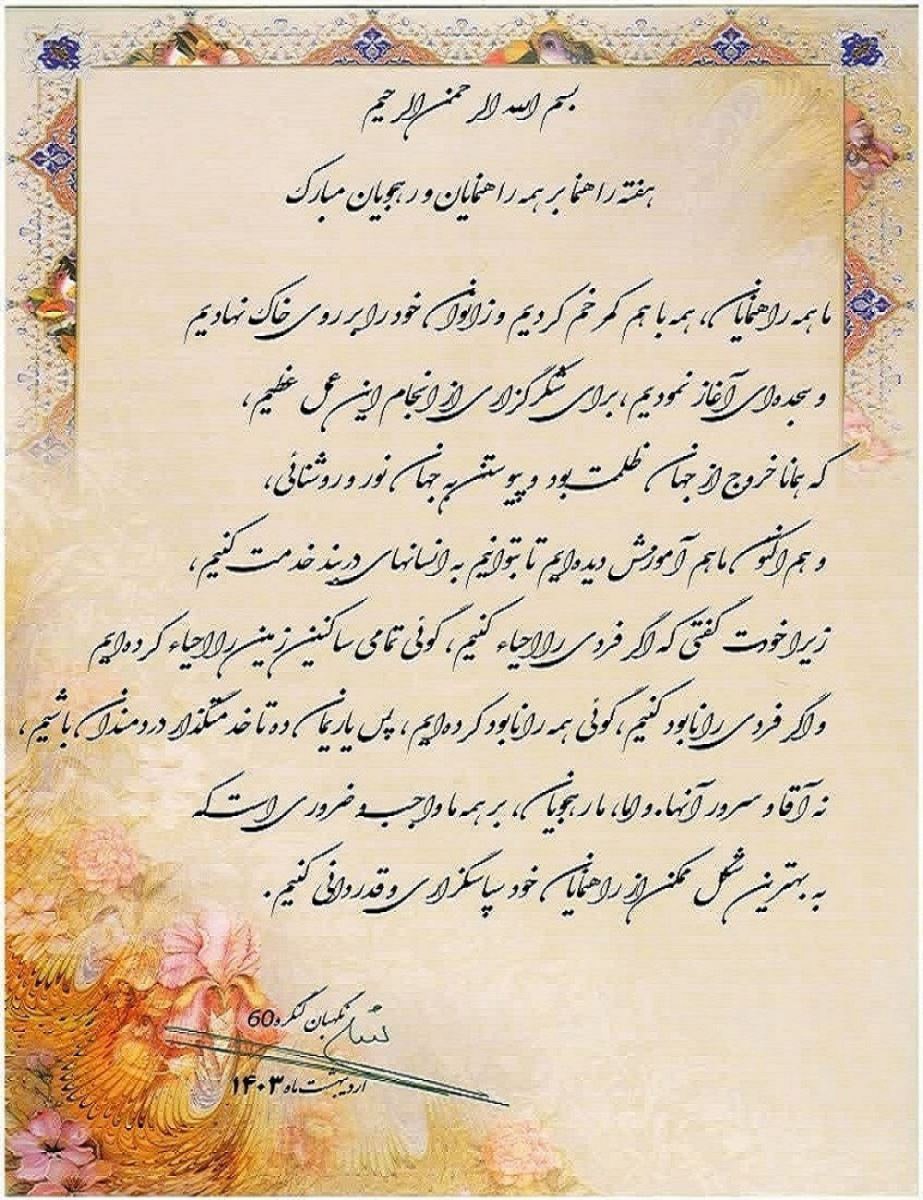 بسم الله الرحمن الرحیم
هفته راهنما بر همه راهنمایان و رهجویان مبارک
ما همه راهنمایان، همه با هم کمر خم کردیم و زانوان خود را بر روی خاک نهادیم
و سجده‌ای آغاز نمودیم، برای شکرگزاری از انجام این عمل عظیم،
که همانا خروج از جهان ظلمت بود و پیوستن به جهان نور و روشنائی،
و هم اکنون ما هم آموزش دیده‌ایم تا بتوانیم به انسانهای دربند خدمت کنیم،
زیرا خودت گفتی که اگر فردی را احیاء کنیم، گوئی تمامی ساکنین زمین را احیاء کرده‌ایم
و اگر فردی را نابود کنیم، گوئی همه را نابود کرده‌ایم، پس یاریمان ده تا خدمتگذار دردمندان باشیم،
نه آقا و سرور آنها. و اما، ما رهجویان، بر همه ما واجب و ضروری است که
به بهترین شکل ممکن از راهنمایان خود سپاسگزاری و قدردانی کنیم.
نگهبان کنگره 60
اردیبهشت ماه ۱۴۰۳